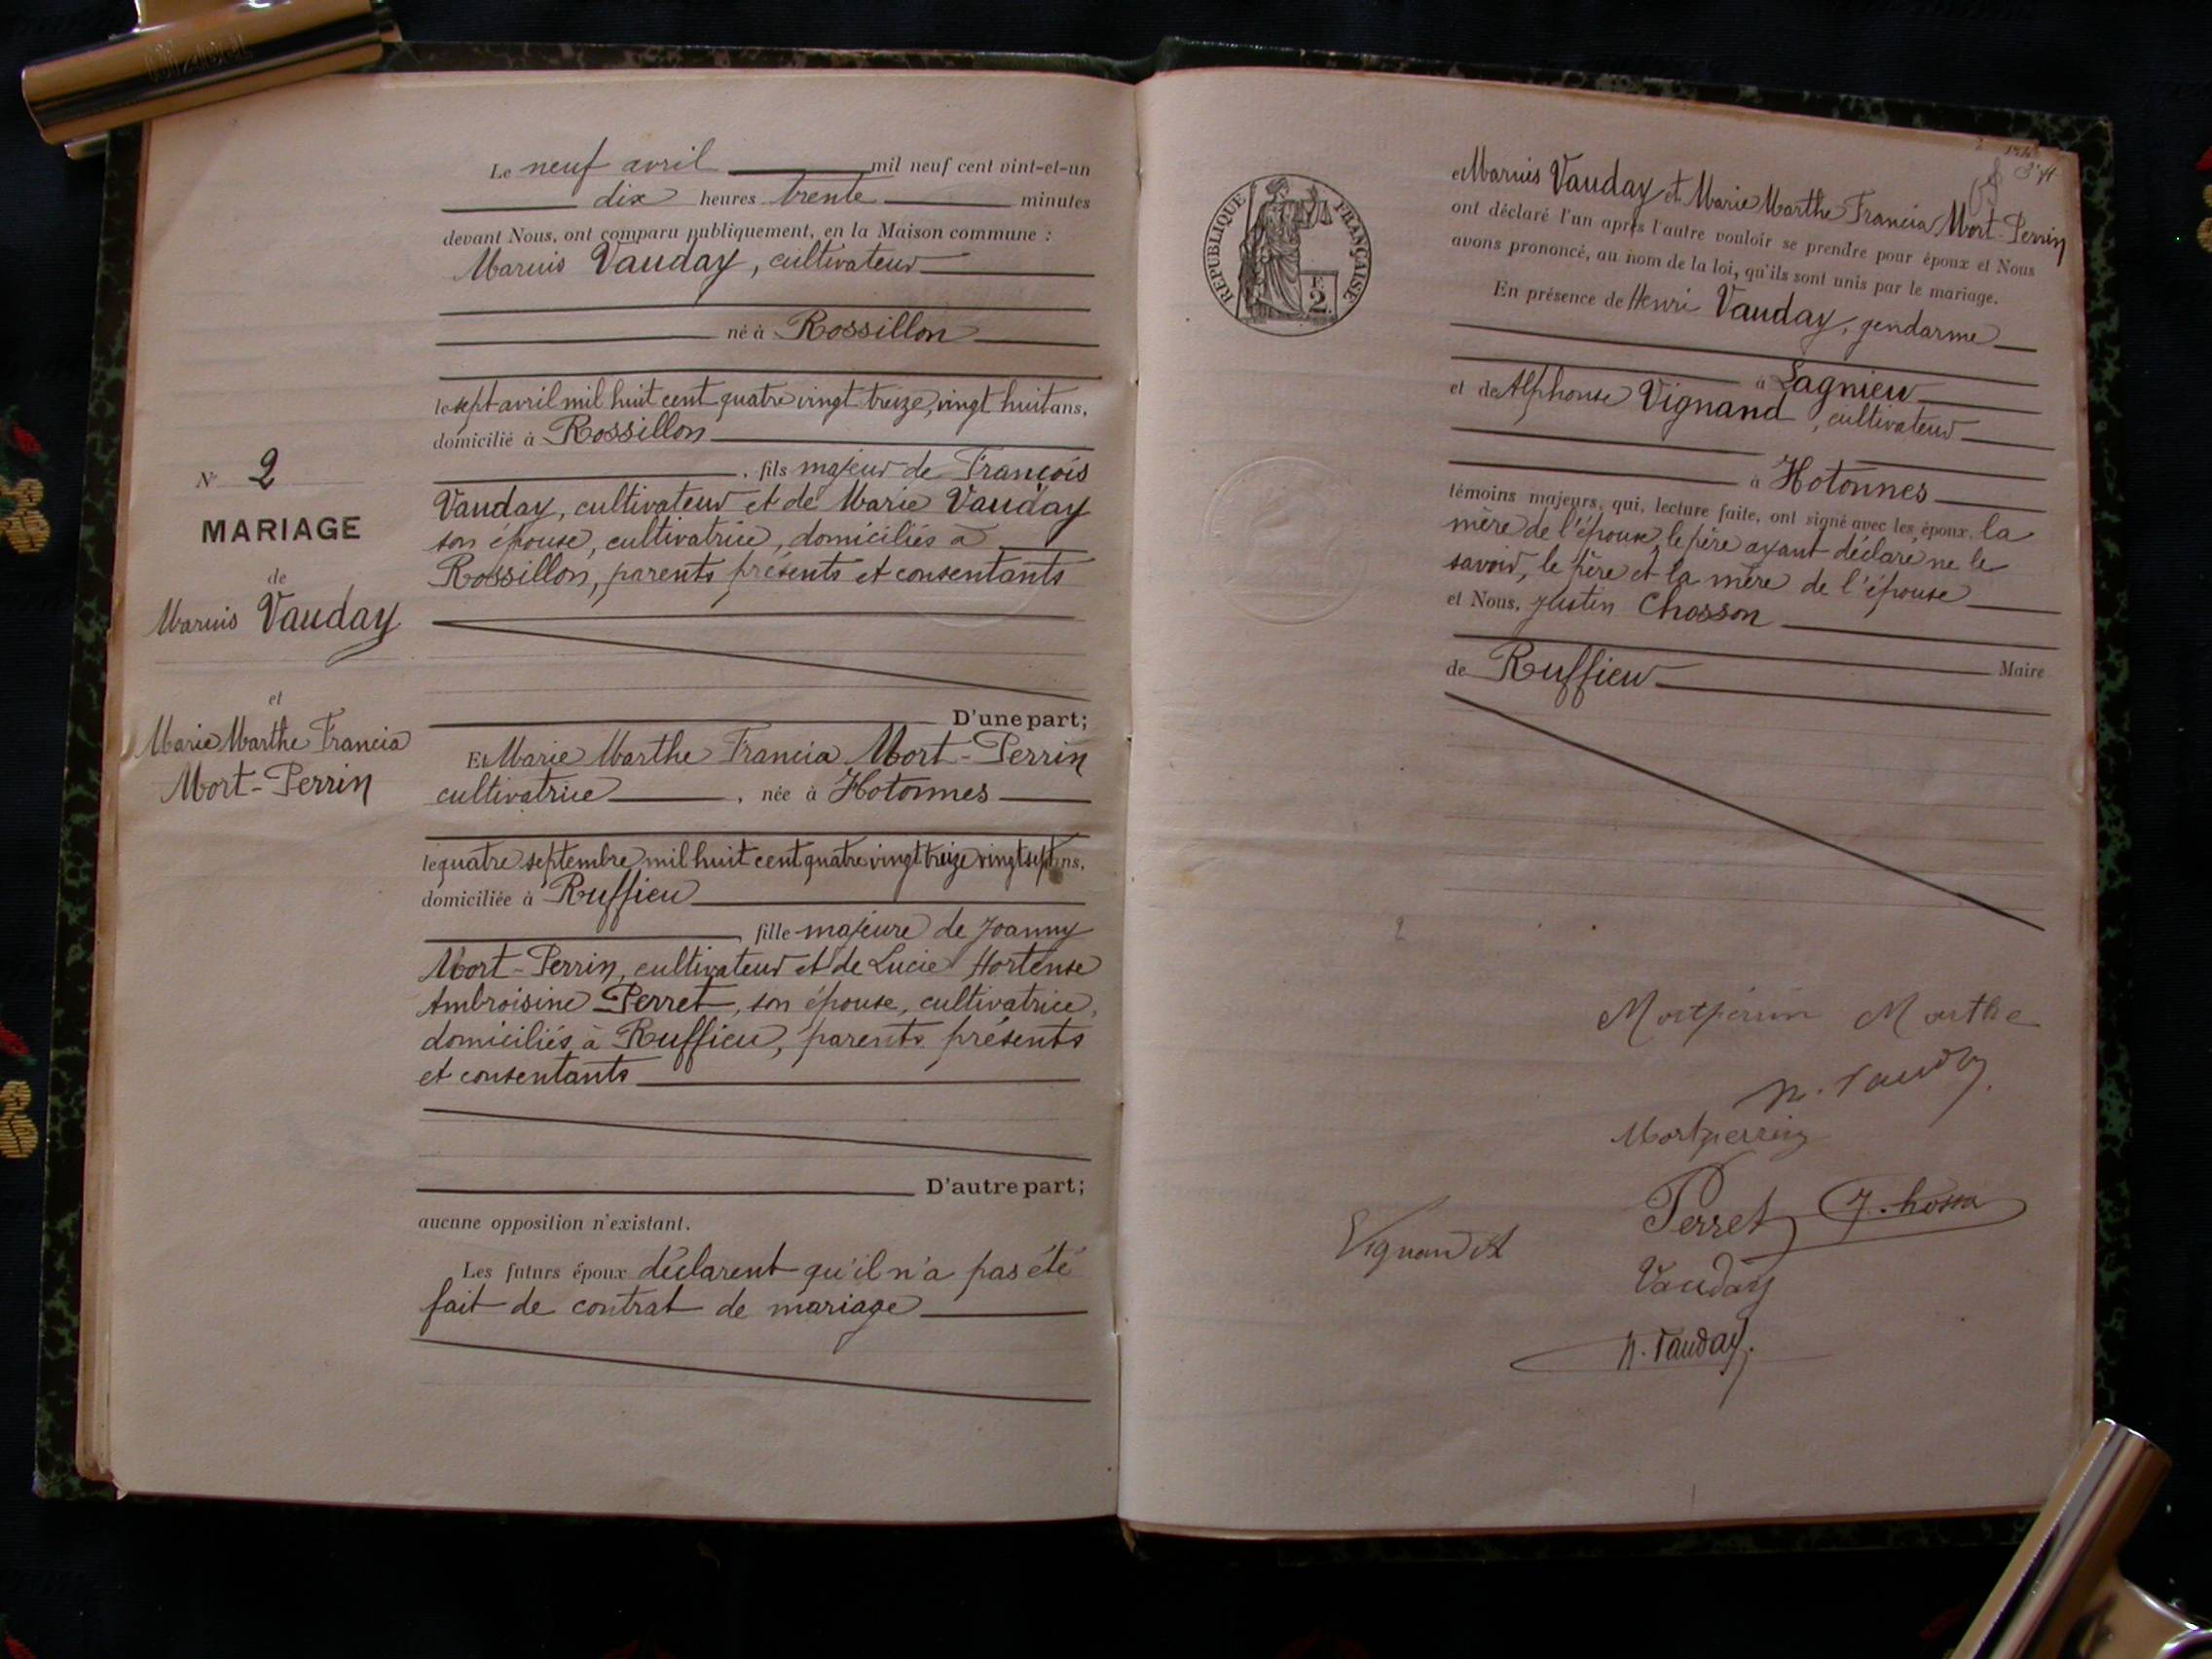 Le neuf avril mil neuf cent vint-et-un
dix heures trente minutes
devant Nous, ont comparu publiquement, en la Maison commune :
Marius Vauday, cultivateur
né à Rossillon
le sept avril mil huit cent quatre vingt treize, vingt huit ans,
domicilié à Rossillon
, fils majeur de François
Vauday, cultivateur et de Marie Vauday
son épouse, cultivatrice, domiciliés à
Rossillon, parents présents et consentants
N° 2
MARIAGE
de
Marius Vauday
et
Marie Marthe Francia
Mort-Perrin
D'une part;
Et Marie Marthe Francia Mort-Perrin
cultivatrice, née à Hotonnes
le quatre septembre mil huit cent quatre vingt treize vingt sept ans,
domiciliée à Ruffieu
, fille majeure de Joanny
Mort-Perrin, cultivateur et de Lucie Hortense
Ambroisine Perret, son épouse, cultivatrice,
domiciliés à Ruffieu, parents présents
et consentants
D'autre part;
aucune opposition n'existant.
Les futurs époux déclarent qu'il n'a pas été
fait de contrat de mariage
RÉPUBLIQUE FRANÇAISE
2
et Marius Vauday et Marie Marthe Francia Mort-Perrin
ont déclaré l'un après l'autre vouloir se prendre pour époux et Nous
avons prononcé, au nom de la loi, qu'ils sont unis par le mariage.
En présence de Henri Vauday, gendarme
à Lagnieu
et de Alphonse Vignand, cultivateur
à Hotonnes
témoins majeurs, qui, lecture faite, ont signé avec les époux, la
mère de l'épouse, le père ayant déclaré ne le
savoir, le père et la mère de l'épouse
et Nous, Justin Chosson
Maire
de Ruffieu
Mortperrin Marthe
M. Vauday
Mortperrin
Perret
Vignand A
Vauday
H. Vauday.